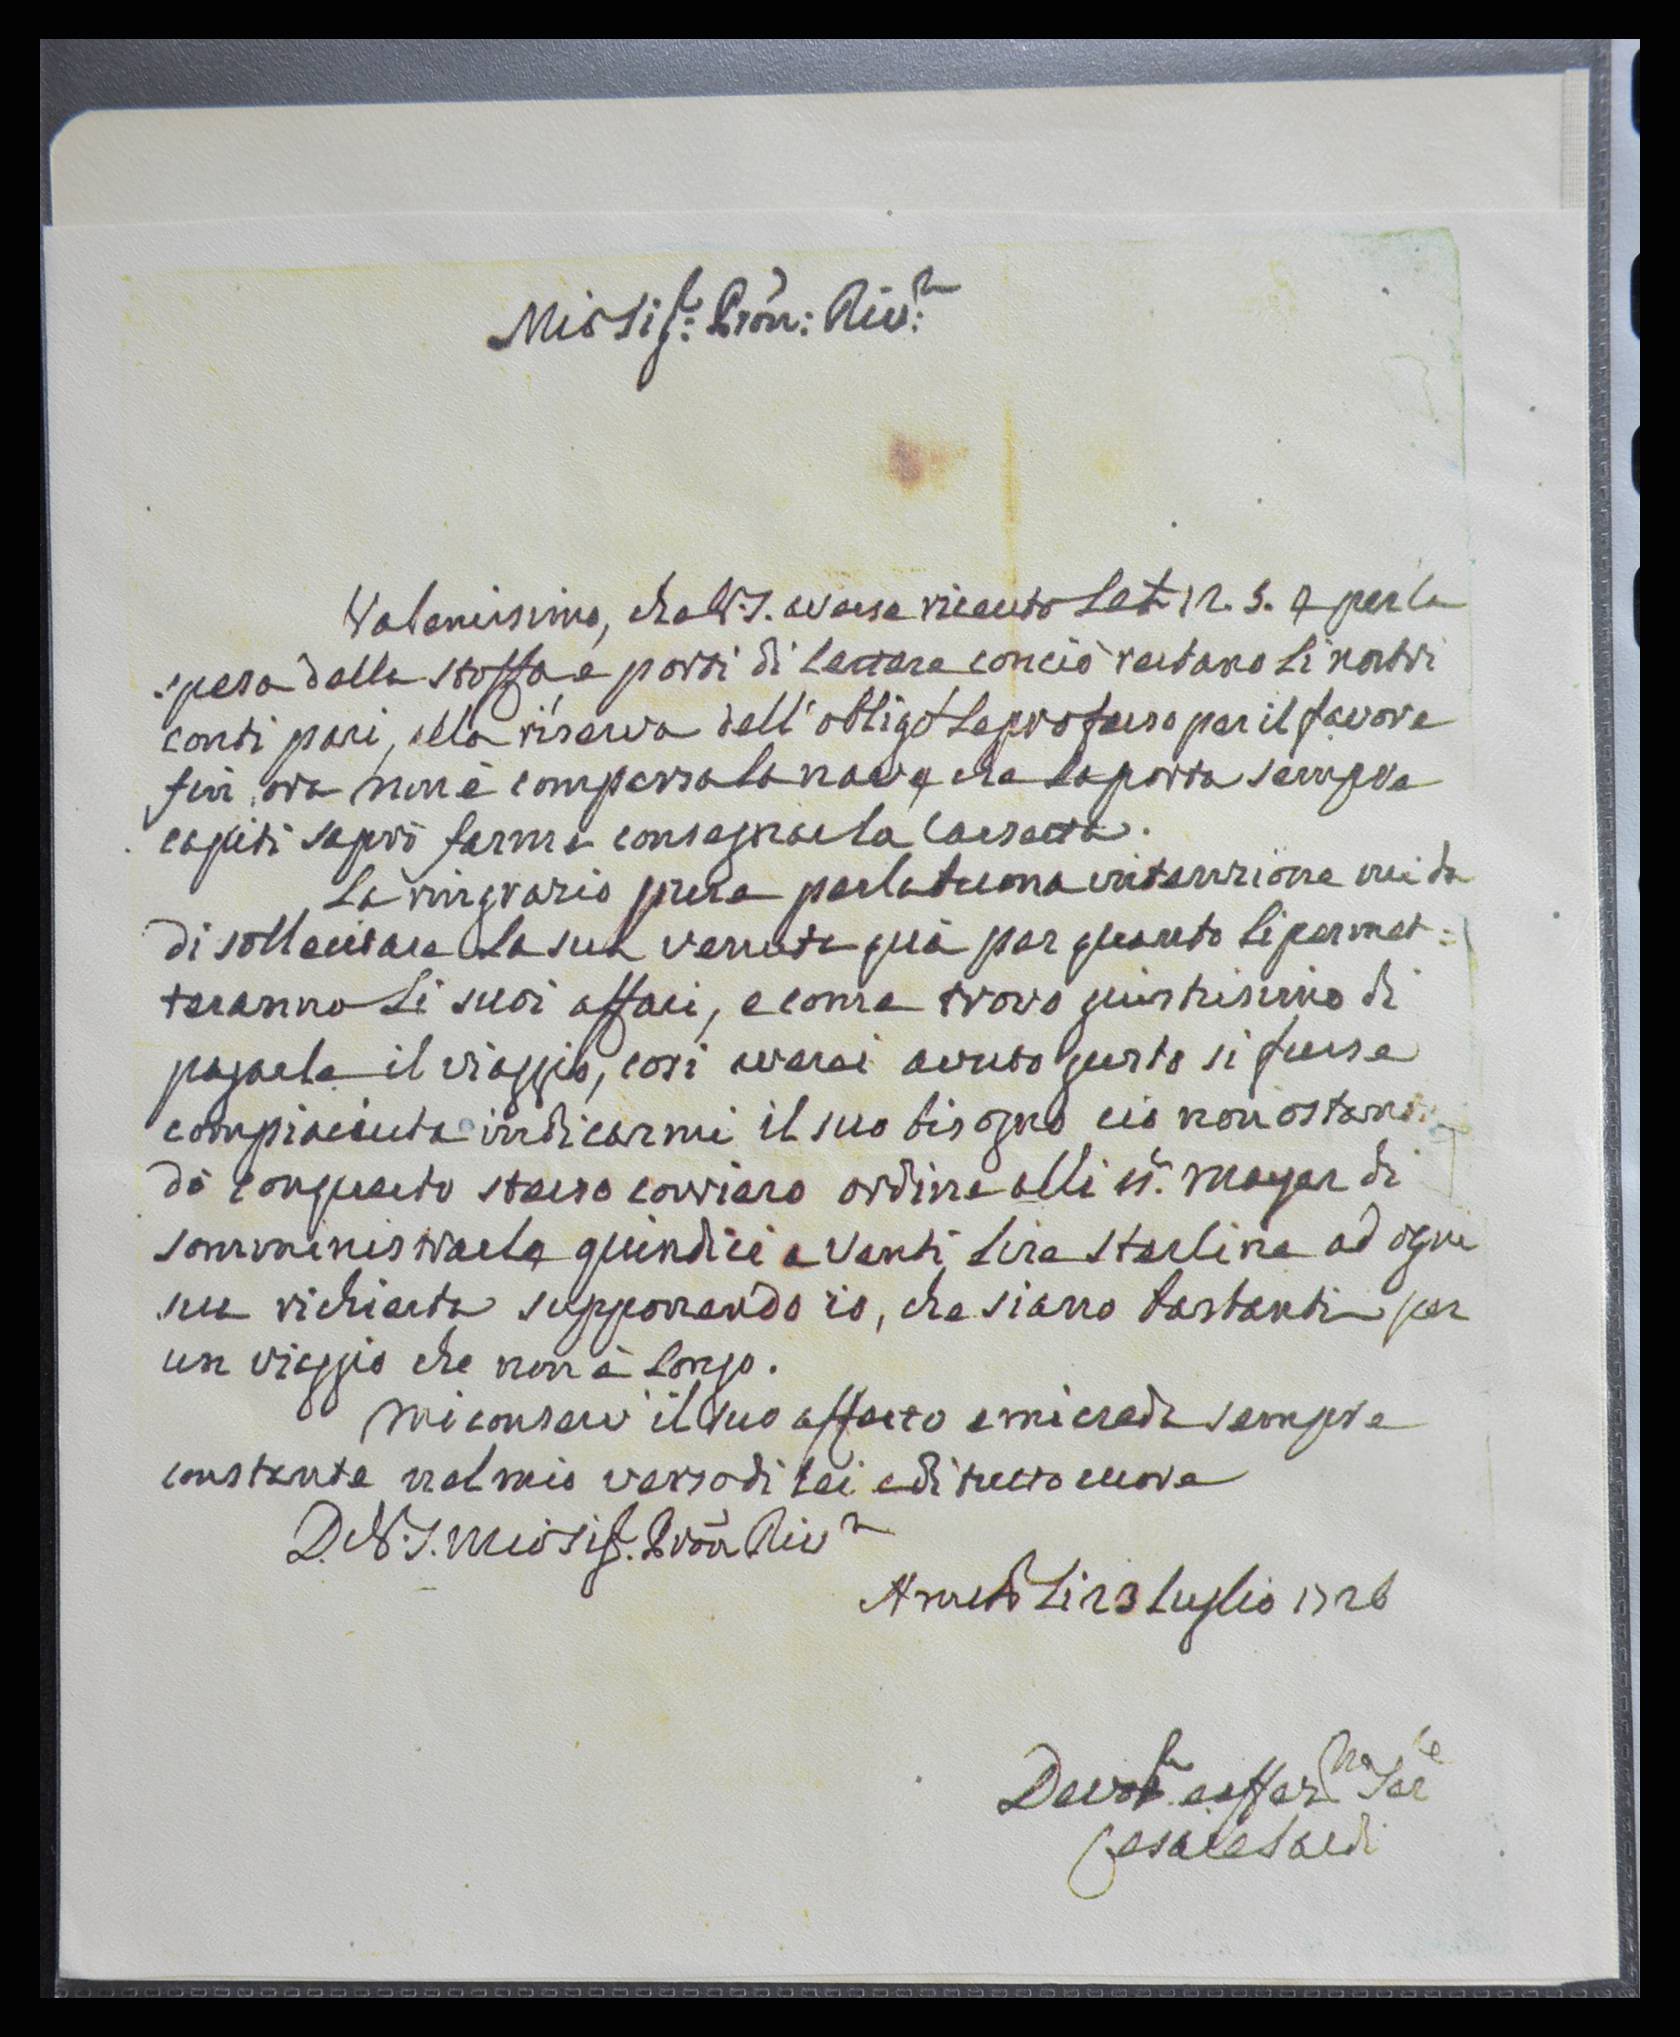 Mio Sig.r: Pron: Riv.:
Va benissimo, che V.S. avesse ricevuto 12. 3. 9 per la
spesa della stoffa, e porti di lettere con ciò restano li nostri
conti pari, alla riserva dell' obligo Le professo per il favore
fin' ora non è comparsa la nave che la porta sempre
capiti saprò farmi consegnare la Cassetta.
La ringrazio pure per la buona intenzione
di sollecitare la sua venuta quà per quanto li permet=
teranno li suoi affari, e come trovo giustissimo di
pagarle il viaggio, così averei avuto gusto si fusse
compiaciuta indicarmi il suo bisogno ciò non ostante
dò con questo stesso corriero ordine alli ss.ri Meyer di
somministrarle quindici a venti lire sterline ad ogni
sua richiesta supponendo io, che siano bastanti per
un viaggio che non è longo.
Mi conservi il suo affetto e mi creda sempre
constante nel mio verso di Lei e di tutto cuore
D. V.S. Mio Sig.r Pron Riv
Amst.m Li 23 Luglio 1726
Devot. e affez.mo Ser.re
Cesare Sardi